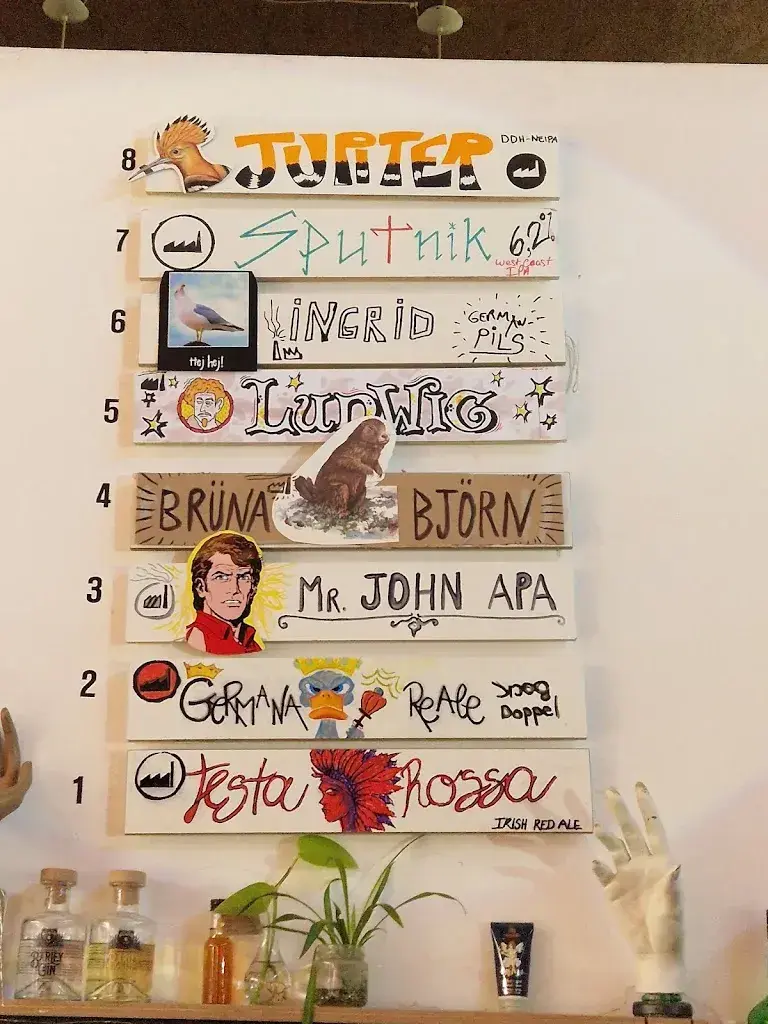 8 JUPITER DDH-NEIPA
7 Sputnik 6,2%
West Coast
IPA
6 INGRID GERMAN
PILS
Hej hej!
5 LUDWIG
4 BRÜNA BJÖRN
3 MR. JOHN APA
2 GERMANA REALE
Doppel
1 Testa Rossa
IRISH RED ALE
BARLEY
GIN